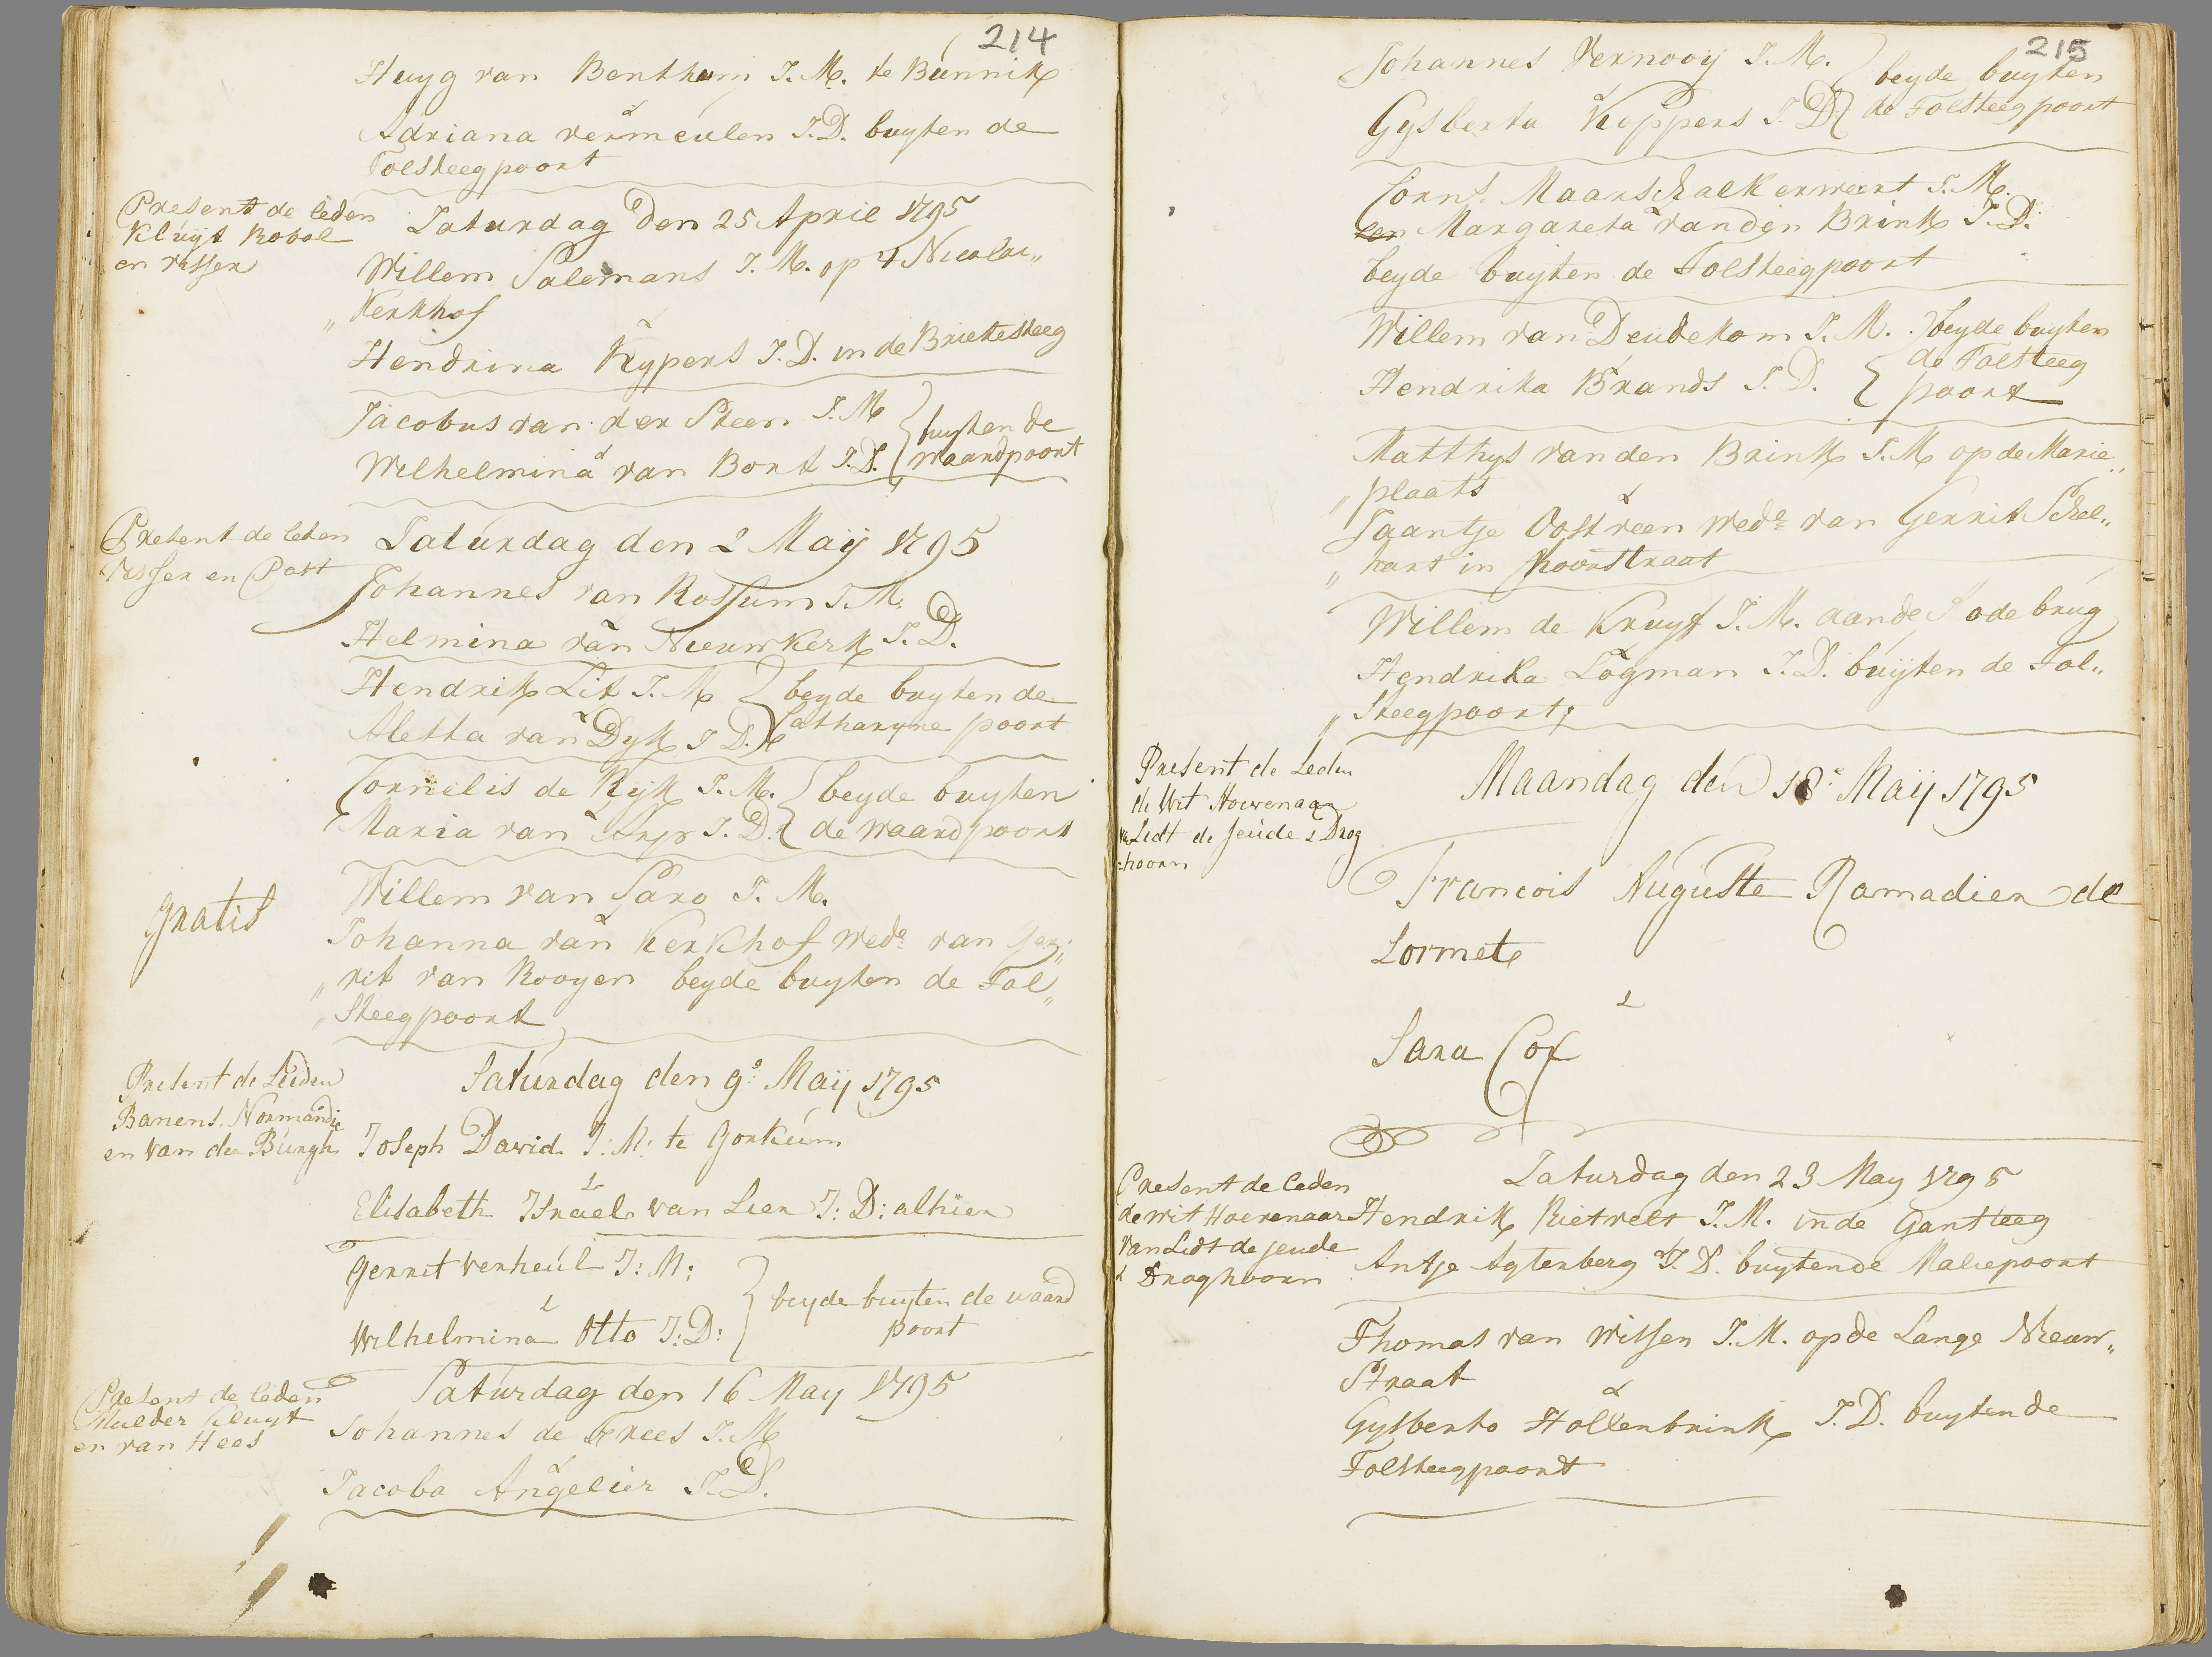 214
Huyg van Benthem J.M. te Bunnik
&
Adriana vermeulen J.D. buyten de
Tolsteegpoort
Present de leden
Kluijt Robol
en visser
Saturdag den 25 April 1795
Willem Salemans J.M. op t Nicolai„
„Kerkhof
&
Hendrina Kypers J.D. in de Brietesteeg
Jacobus van der Steen J.M
&
Wilhelmina van Bort J.D.
buyten de
waardpoort
Present de leden
visser en Post
Saturdag den 2 Maij 1795
Johannes van Rossum J.M.
&
Helmina van Nieuwkerk J.D.
Hendrik Lit J.M
&
Aletta van Dyk J D.
beyde buyten de
Catharyne poort
Cornelis de Kyk J.M.
&
Maria van Anp J.D.
beyde buyten
de waardpoort
gratis
Willem van Saro J.M.
&
Johanna van Kerkhof wede van Ger„
„rit van Rooyen beyde buyten de Tol„
„Steegpoort
Present de Leeden
Banens. Normandie
en van der Burgh
Saturdag den 9e Maij 1795
Joseph David J:M: te Gorkum
&
Elisabeth Israel van Lier J:D: alhier
Gerrit verheul J:M:
&
Wilhelmina Otto J:D:
beyde buyten de waard
poort
Present de leden
Mulder Kluyt
en van Hees
Saturdag den 16 May 1795
Johannes de Frees J.M
&
Jacoba Angelier J.D.
215
Johannes Vernooij J.M.
&
Gysberta Koppers J.D.
beyde buyten
de Tolsteegpoort
Corns. Maarschalkerweert J.M.
&
en Margareta van den Brink J.D.
beyde buyten de Tolsteegpoort
Willem van Deudekom J.M.
&
Hendrika Brands J.D.
beyde buyten
de Tolsteeg
poort
Matthys van den Brink J.M op de Marie„
„plaats
&
Jaantje Oostveen wede van Gerrit Schel„
„hart in Koorstraat
Willem de Kruyf J.M. aan de Rodebrug
&
Hendrika Logman J.D. buijten de Tol„
„Steegpoort
Present de Leden
de Wit Hoevenaar
van Lidt de Jeude & Drog
hoorn
Maandag den 18e Maij 1795
Francois Auguste Ramadier de
Lormet
&
Sara Cox
Present de leden
de wit Hoevenaar
van Lidt de jeude
& Droghoorn
Saturdag den 23 May 1795
Hendrik Rietvelt J.M. in de Gansteeg
&
Antje Agterberg J.D. buyten de Maliepoort
Thomas van Wissen J.M. op de Lange Nieuw„
Straat
&
Gysberto Hollenbrink J.D. buyten de
Tolsteegpoort